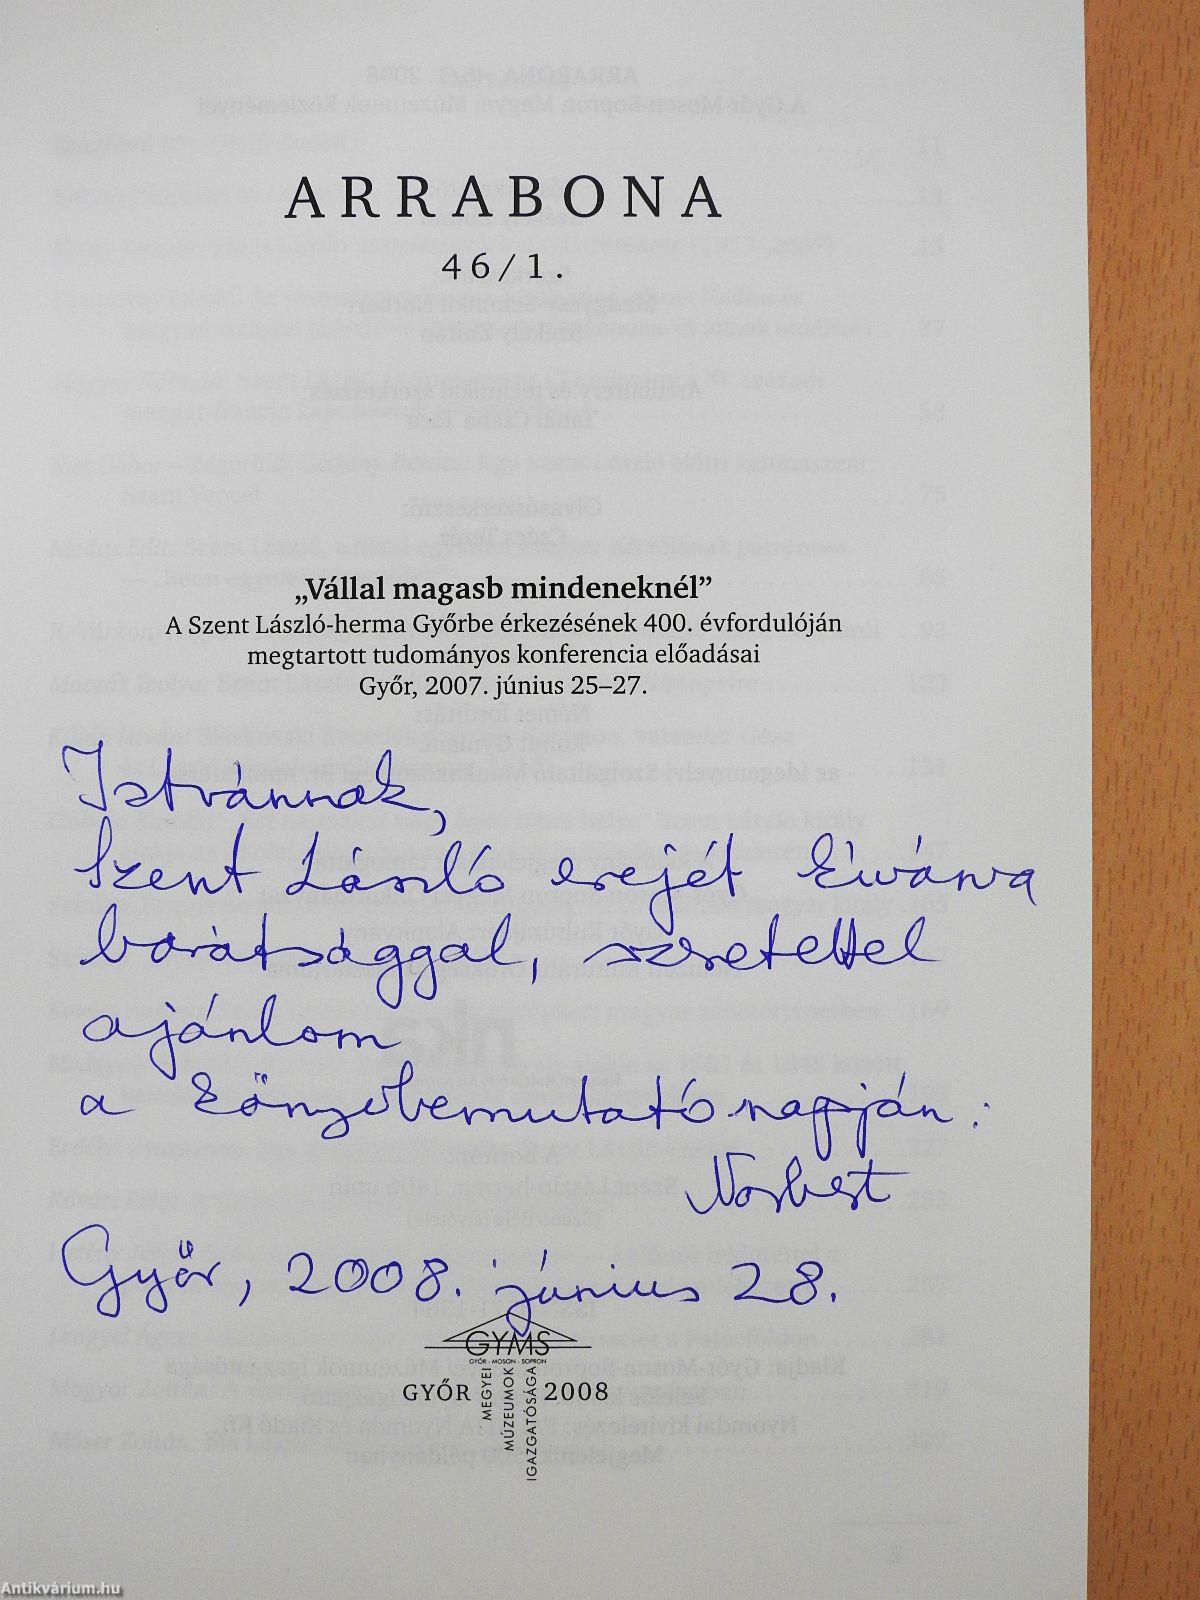 ARRABONA
46/1.
„Vállal magasb mindeneknél”
A Szent László-herma Győrbe érkezésének 400. évfordulóján
megtartott tudományos konferencia előadásai
Győr, 2007. június 25–27.
Istvánnak,
Szent László erejét kívánva
barátsággal, szeretettel
ajánlom
a könyvbemutató napján:
Norbert
Győr, 2008. június 28.
GYMS
GYŐR - MOSON - SOPRON
GYŐR 2008
MEGYEI
MÚZEUMOK
IGAZGATÓSÁGA
Antikvárium.hu